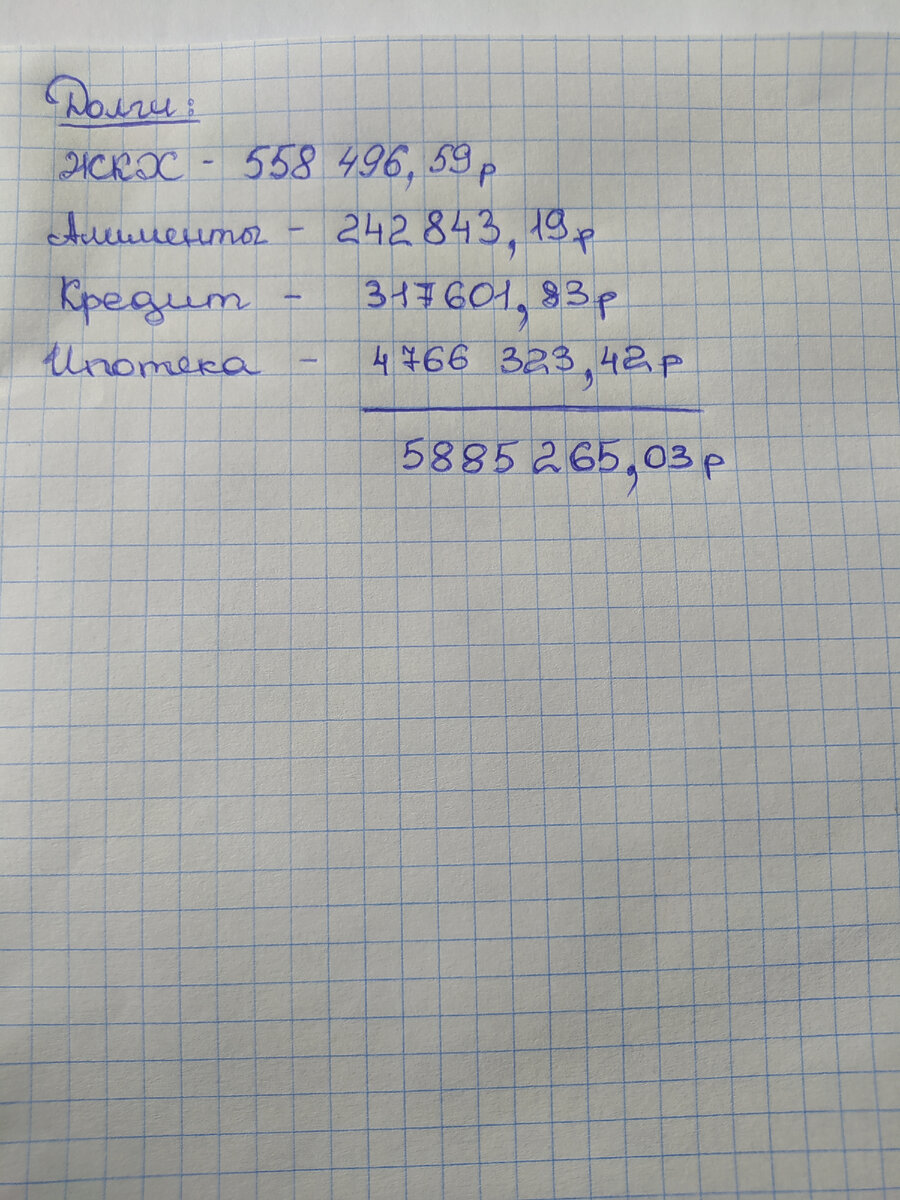 Долги:
ЖКХ - 558 496,59р
Алименты - 242 843,19р
Кредит - 317601,83р
Ипотека - 4766 323,42р
5885 265,03р